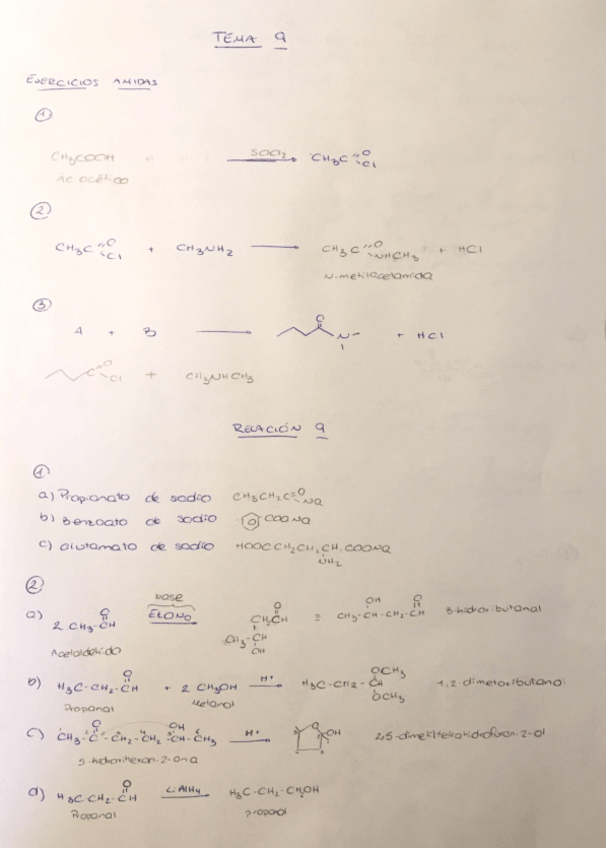 TEMA 9
EJERCICIOS AMIDAS
①
CH₃COOH → SOCl₂ CH₃C=O Cl
Ác acético
②
CH₃C=O Cl + CH₃NH₂ → CH₃C=O NHCH₃ + HCl
N-metilacetamida
③
A + B → O N + HCl
C=O Cl + CH₃NHCH₃
RELACIÓN 9
①
a) Propionato de sodio CH₃CH₂C=O Na
b) Benzoato de sodio COONa
c) Glutamato de sodio HOOCCH₂CH₂CHCOONa NH₂
②
base
a) 2 CH₃-CH=O → CH₂CH=O CH₃-CH OH = CH₃-CH(OH)-CH₂-CH=O 3-hidroxibutanal
Acetaldehído
b) H₃C-CH₂-CH=O + 2 CH₃OH → H⁺ H₃C-CH₂-CH OCH₃ OCH₃ 1,2-dimetoxibutano
Propanal Metanol
c) CH₃-C(=O)-CH₂-CH₂-CH(OH)-CH₃ → H⁺ O OH 2,5-dimetiltetrahidrofuran-2-ol
5-hidroxihexan-2-ona
d) H₃C-CH₂-CH=O → LiAlH₄ H₃C-CH₂-CH₂OH
Propanal propanol